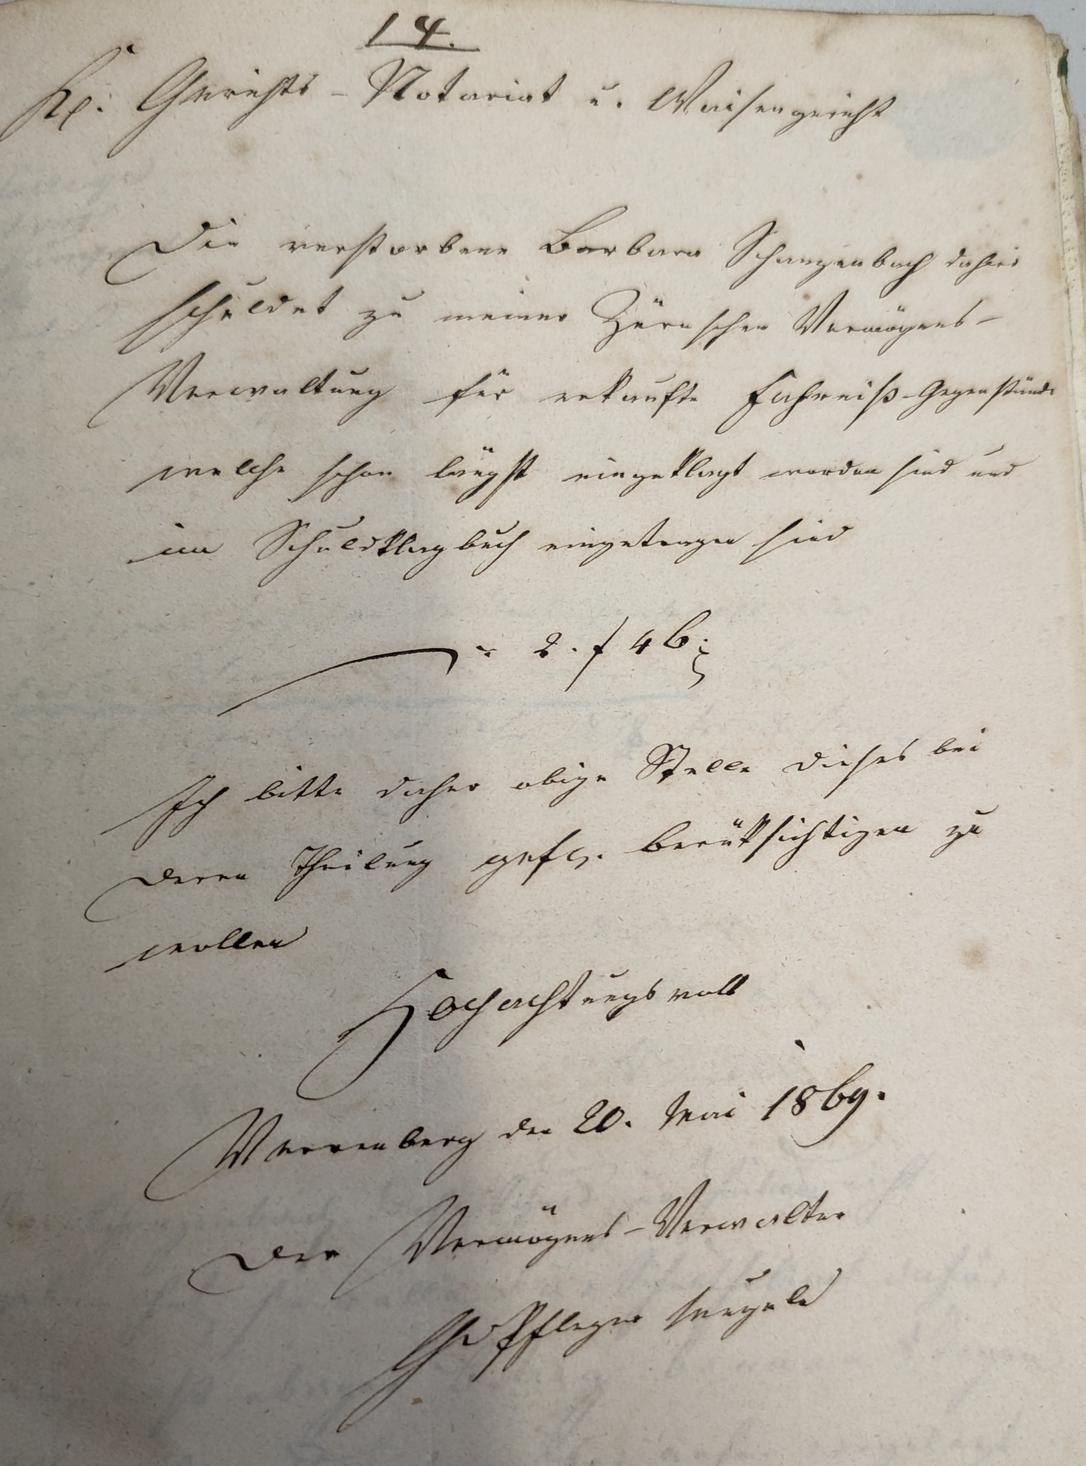 14.
Kg. Gerichts-Notariat u. Waisengericht
Die verstorbene Barbara Schanzenbach dahier
schuldet zu meiner Zürnschen Vermögens-
Verwaltung für erkaufte Fahrniß-Gegenstände
welche schon längst eingeklagt worden sind und
im Schuldklagbuch eingetragen sind
2. f 46
Ich bitte daher obige Stelle dieses bei
deren Theilung gefl. berüksichtigen zu
wollen
Hochachtungsvoll
Verrenberg den 20. Mai 1869.
Der Vermögens-Verwalter
Gdpfleger